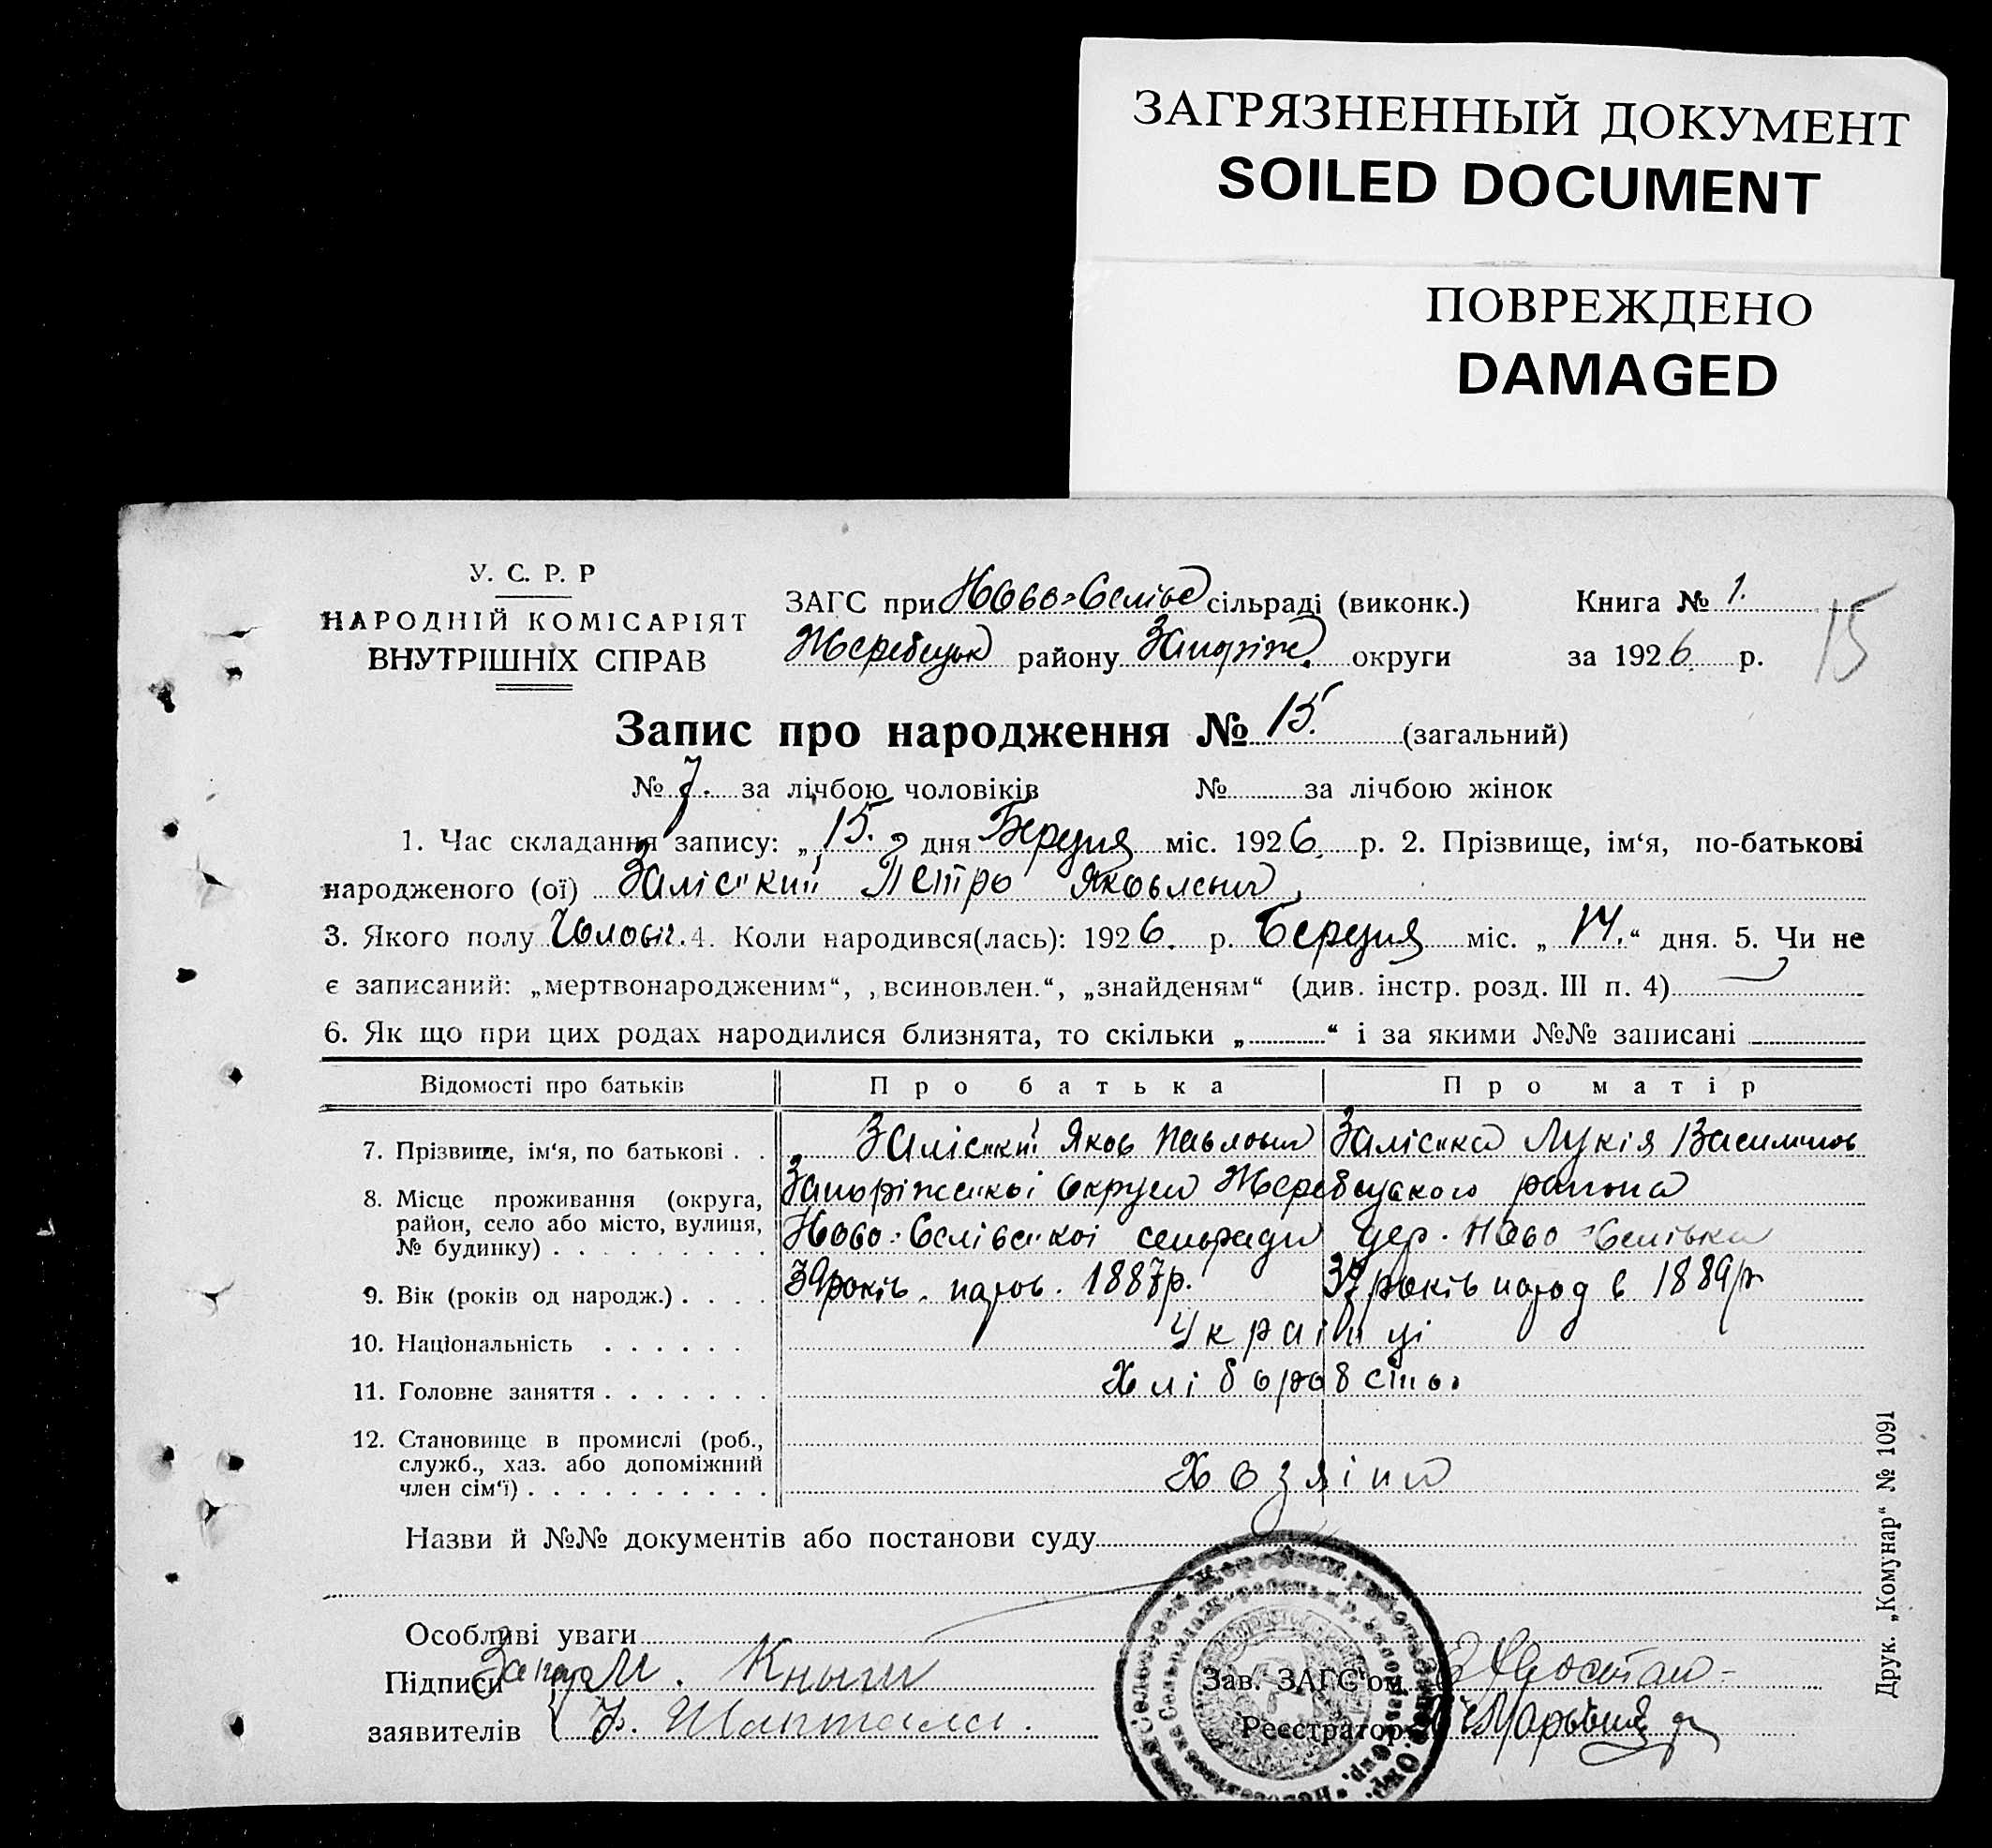 ЗАГРЯЗНЕННЫЙ ДОКУМЕНТ
SOILED DOCUMENT
ПОВРЕЖДЕНО
DAMAGED
У. С. Р. Р
НАРОДНІЙ КОМІСАРІЯТ
ВНУТРІШНІХ СПРАВ
ЗАГС при Ново-Селівс сільраді (виконк.)
Жеребецьк району Запоріж. округи
Книга № 1.
за 1926 р.
15
Запис про народження № 15. (загальний)
№ 7. за лічбою чоловіків № за лічбою жінок
1. Час складання запису: „15.„ дня Березня міс. 1926 р. 2. Прізвище, ім‘я, по-батькові
народженого (ої) Заліський Петро Яковлевич
3. Якого полу Чоловіч. 4. Коли народився(лась): 1926. р. Березня міс. „14.“ дня. 5. Чи не
є записаний: „мертвонародженим“, „всиновлен.“, „знайденям“ (див. інстр. розд. III п. 4)
6. Як що при цих родах народилися близнята, то скільки „ “ і за якими №№ записані
Відомості про батьків Про батька Про матір
7. Прізвище, ім‘я, по батькові . . Заліський Яков Павлович Заліська Лукія Василівн
8. Місце проживання (округа, район, село або місто, вулиця, № будинку) Запоріжської округи Жеребецького района
Ново-Селівської сельради дер. Ново-Селівка
9. Вік (років од народж.) . . . . 39 років. народ. 1887р. 37 років народ в 1889р.
10. Національність . . . . . . Українці
11. Головне заняття . . . . . . Хліборобство
12. Становище в промислі (роб., служб., хаз. або допоміжний член сім‘ї) Хозяіни
Назви й №№ документів або постанови суду
Особливі уваги
Підписи заявителів
М. Книш
Зав. ЗАГС‘ом
Реєстратор
Друк. „Комунар“ № 1091